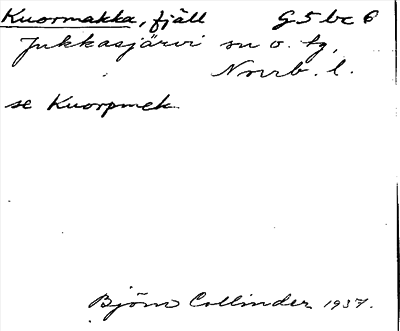 Kuormakka, fjäll G5bc6
Jukkasjärvi sn o. tg,
Norrb. l.
se Kuorpmek
Björn Collinder 1937.